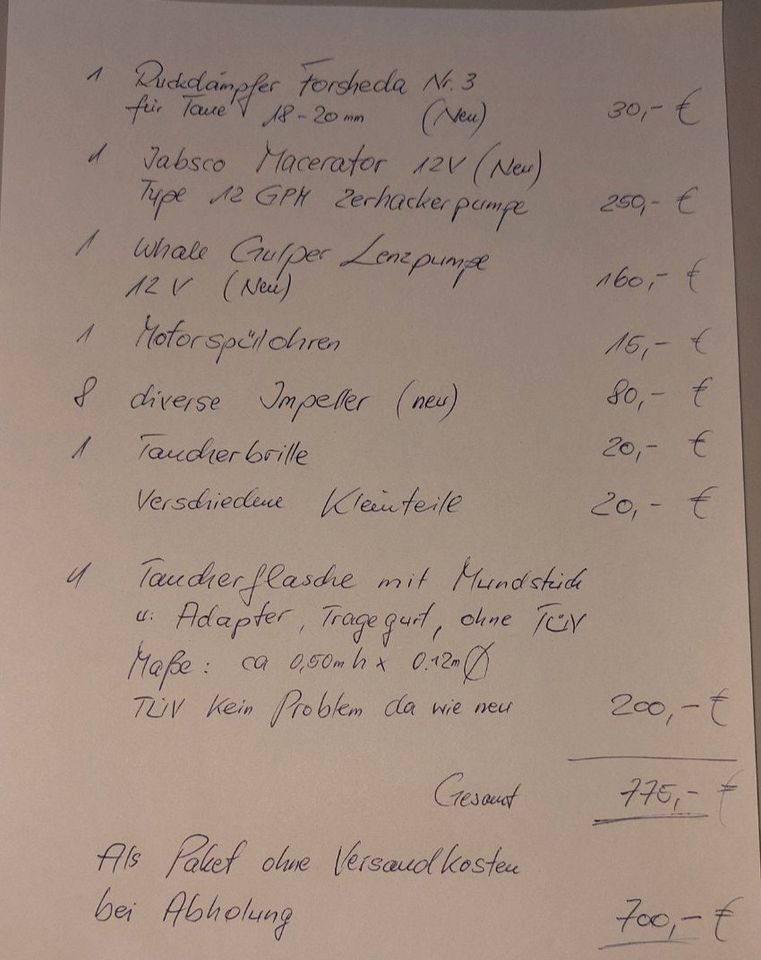 1 Ruckdämpfer Forsheda Nr. 3
für Taue 18-20mm (Neu) 30,- €
1 Jabsco Macerator 12V (Neu)
Type 12 GPM Zerhackerpumpe 250,- €
1 Whale Gulper Lenzpumpe
12V (Neu) 160,- €
1 Motorspülohren 15,- €
8 diverse Impeller (neu) 80,- €
1 Taucherbrille 20,- €
Verschiedene Kleinteile 20,- €
1 Taucherflasche mit Mundstück
u. Adapter, Tragegurt, ohne TÜV
Maße: ca 0,50m h x 0.12m Ø
TÜV kein Problem da wie neu 200,- €
Gesamt 775,- €
Als Paket ohne Versandkosten
bei Abholung 700,- €